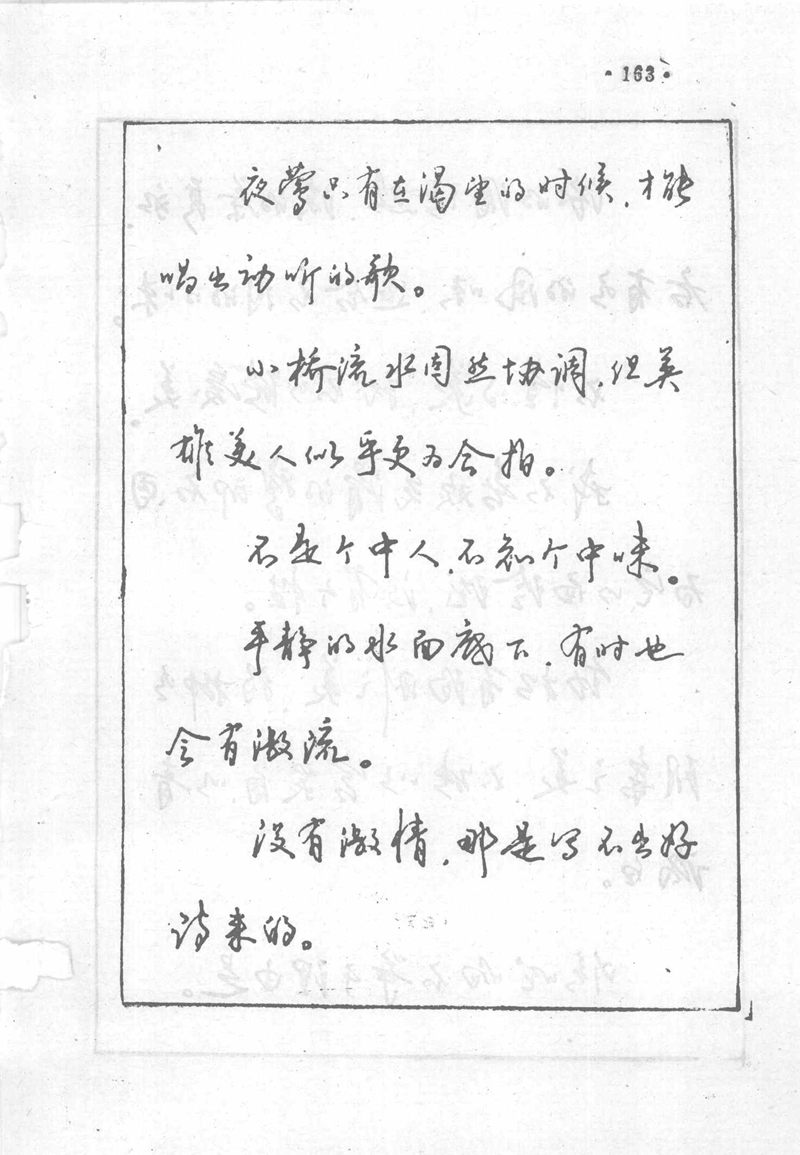 ·163·
夜莺只有在渴望的时候，才能
唱出动听的歌。
小桥流水固然协调，但英
雄美人似乎更为合拍。
不是个中人，不知个中味。
平静的水面底下，有时也
会有激流。
没有激情，那是写不出好
诗来的。